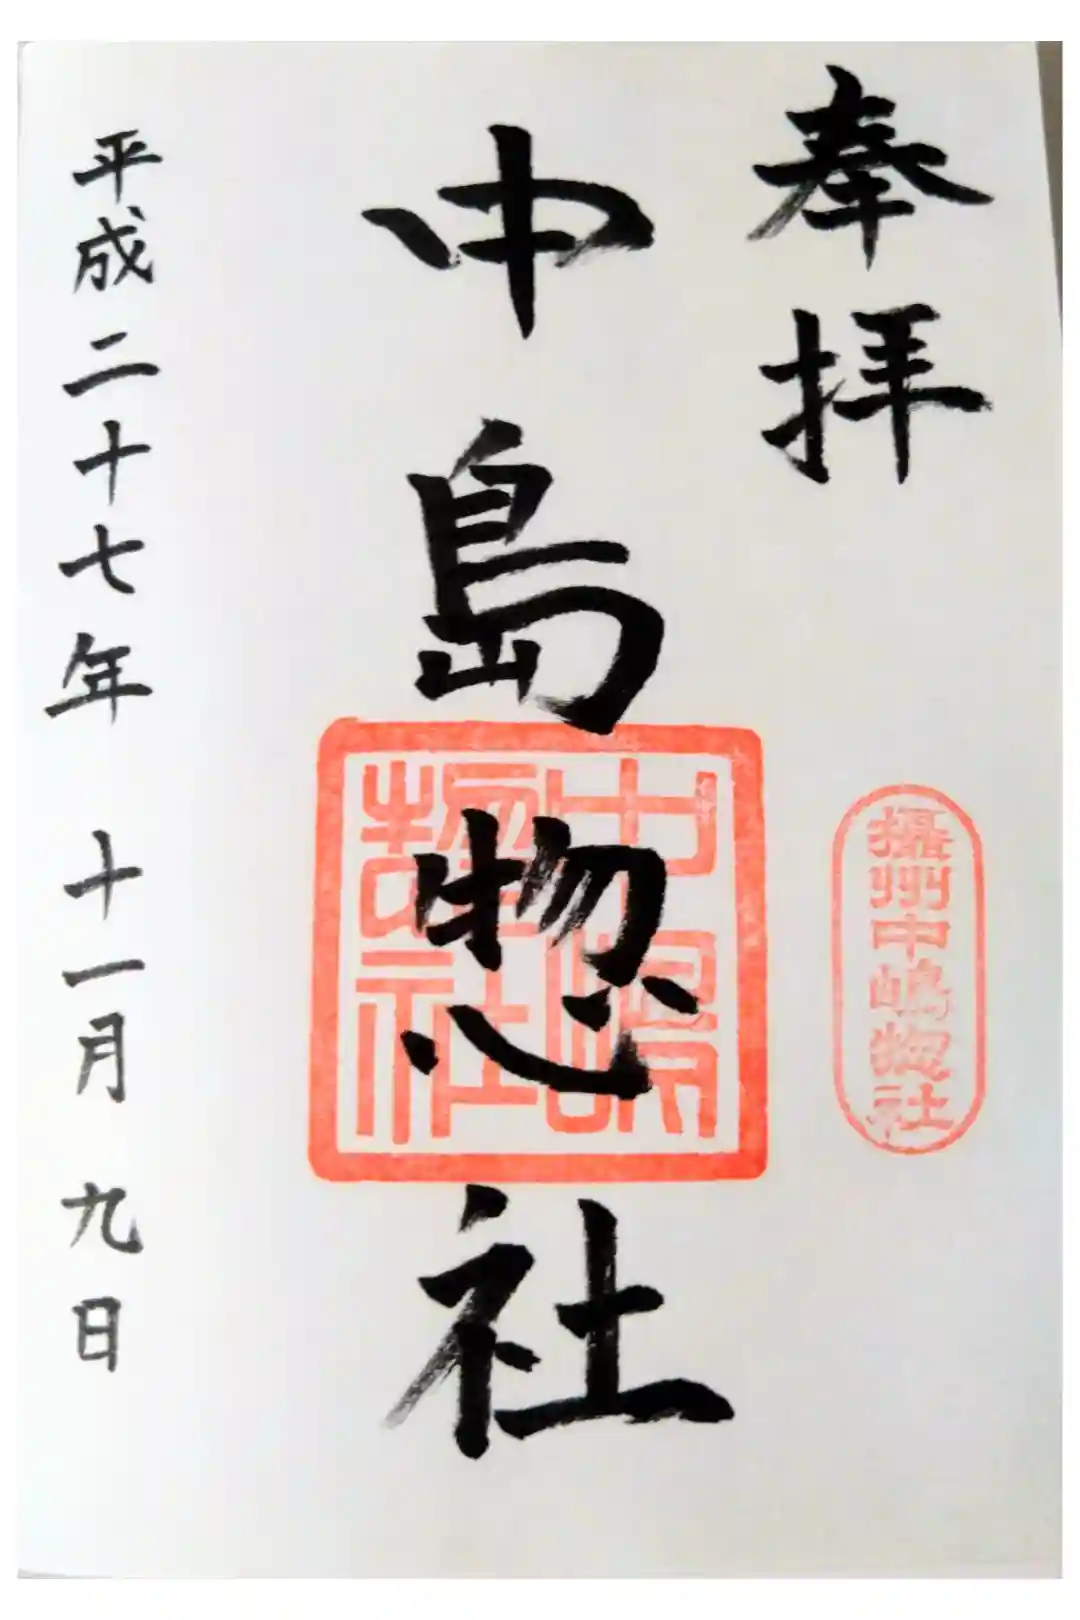 奉拝
攝州中嶋惣社
中島惣社
中嶋惣社
平成二十七年 十一月 九日